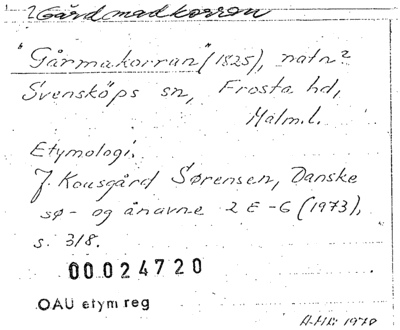 ? Gårdmadkorran
"Gårmakorran" (1825), natn?
Svensköps sn, Frosta hd,
Malm.l.
Etymologi.
J. Kousgård Sørensen, Danske
sø- og ånavne 2 E-G (1973),
s. 318.
00024720
OAU etym reg
1978